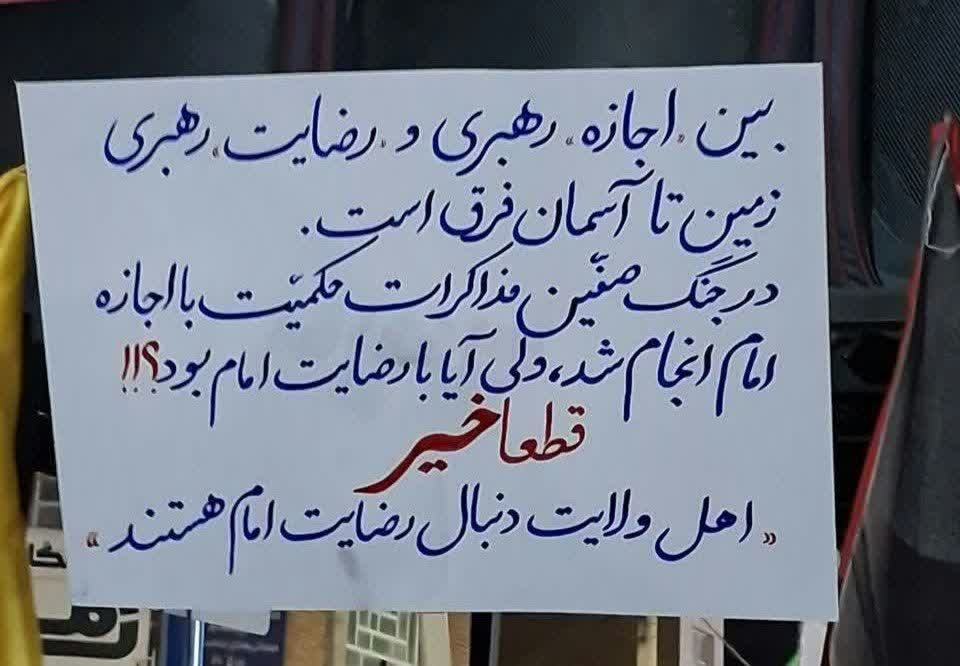 بین «اجازه» رهبری و «رضایت» رهبری
زمین تا آسمان فرق است.
در جنگ صفّین مذاکرات حکمیّت با اجازه
امام انجام شد، ولی آیا با رضایت امام بود؟!!
قطعا خیر
«اهل ولایت دنبال رضایت امام هستند»